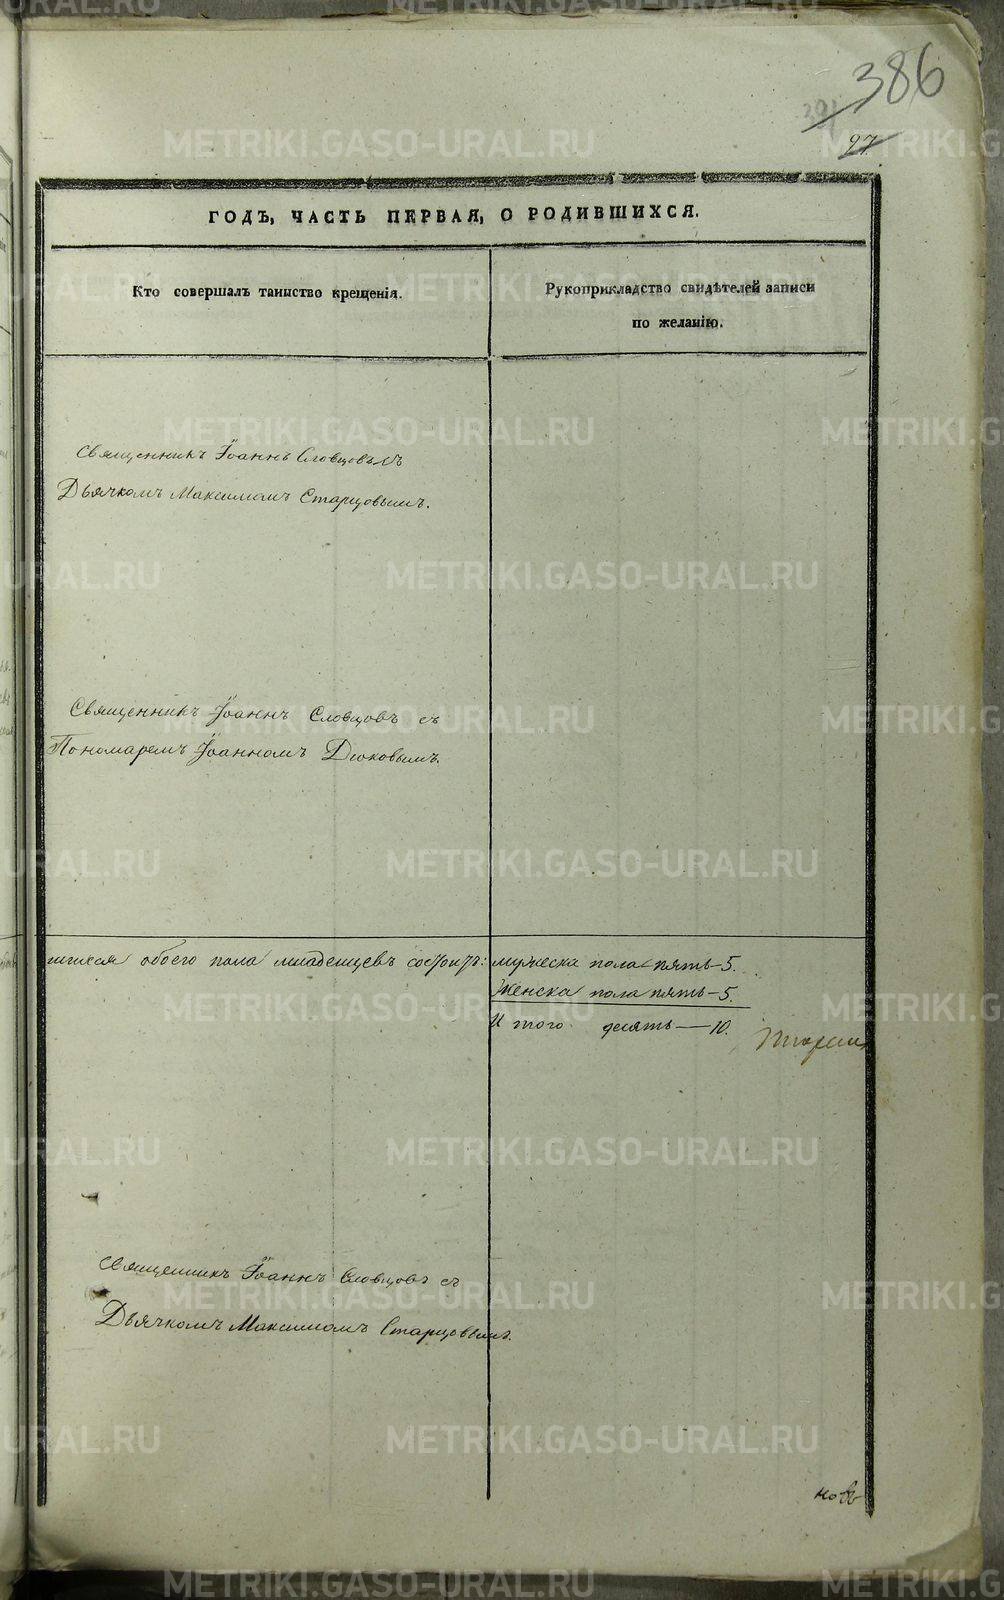 386
301
27
ГОДЪ, ЧАСТЬ ПЕРВАЯ, О РОДИВШИХСЯ.
Кто совершалъ таинство крещенія.
Рукоприкладство свидѣтелей записи
по желанію.
Священникъ Іоаннъ Словцовъ съ
Дьячкомъ Максимомъ Старцовымъ.
Священникъ Іоаннъ Словцовъ съ
Пономаремъ Іоанномъ Дюковымъ.
шихся обоего пола младенцевъ состоитъ: мужеска пола пять—5.
Женска пола пять—5.
И того десять—10.
Священникъ Іоаннъ Словцовъ съ
Дьячкомъ Максимомъ Старцовымъ.
METRIKI.GASO-URAL.RU